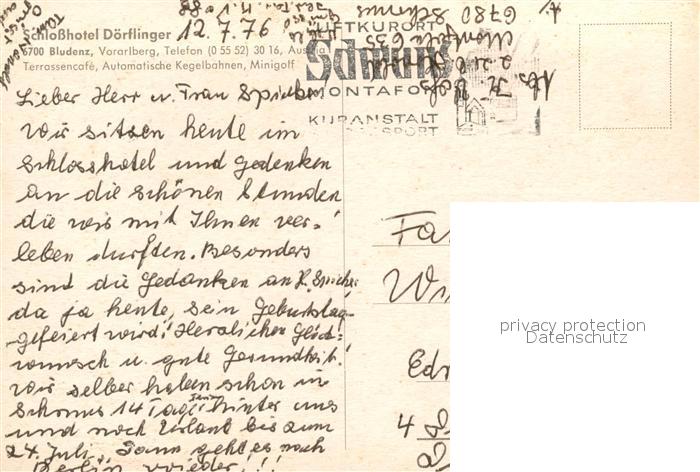 Schloßhotel Dörflinger 12.7.76
6700 Bludenz, Vorarlberg, Telefon (0 55 52) 30 16, Austria
Terrassencafé, Automatische Kegelbahnen, Minigolf
LUFTKURORT
Schruns
MONTAFON
KURANSTALT
SPORT
Lieber Herr u. Frau
Wir sitzen heute im
Schlosshotel und gedenken
an die schönen Stunden
die wir mit Ihnen ver-
leben durften. Besonders
sind die Gedanken an H.
da ja heute, sein Geburtstag
gefeiert wird! Herzlichen Glück-
wunsch u. gute Gesundheit!
Wir selber haben schon in
Schruns 14 Tage hinter uns
und noch Urlaub bis zum
24. Juli. Dann geht es nach
Berlin wieder!!
Fa
Wi
Edr
4
privacy protection
Datenschutz
Abs.
z. Zt.
6780 Schruns